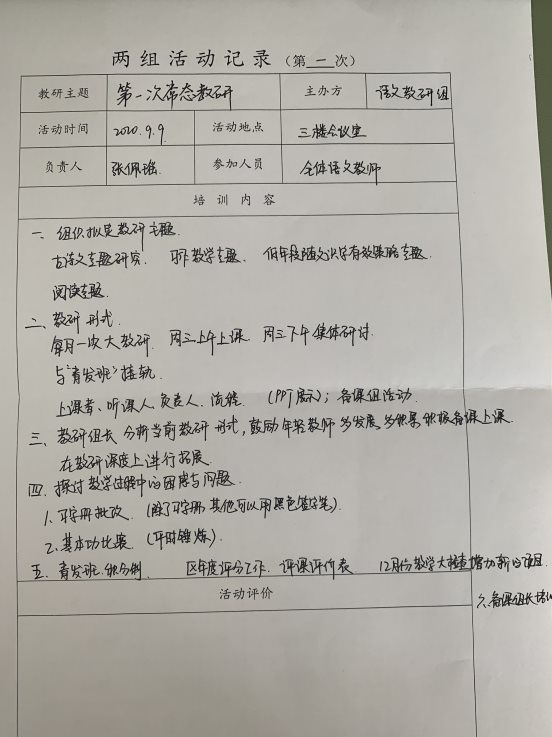 两组活动记录（第一次）
教研主题 第一次常态教研 主办方 语文教研组
活动时间 2020.9.9 活动地点 三楼会议室
负责人 张佩瑶 参加人员 全体语文教师
培训内容
一、组织拟定教研主题.
古诗文专题研究. 习作教学专题. 低年段随文识字有效策略专题.
阅读专题.
二、教研形式.
每月一次大教研. 周三上午上课. 周三下午集体研讨.
与“青发班”挂轨.
上课者、听课人、负责人、流程. （PPT展示）; 备课组活动.
三、教研组长分析当前教研形式，鼓励年轻教师多发展、多积累、积极备课上课.
在教研深度上进行拓展.
四、探讨教学过程中的困惑与问题.
1. 习字册批改.（除了习字册，其他可以用黑色签字笔）.
2. 基本功比赛.（平时锤炼）.
五、青发班. 区年度评分工作. 评课评价表 12月份教学大检查增加新的项目.
六、备课组长培
活动评价